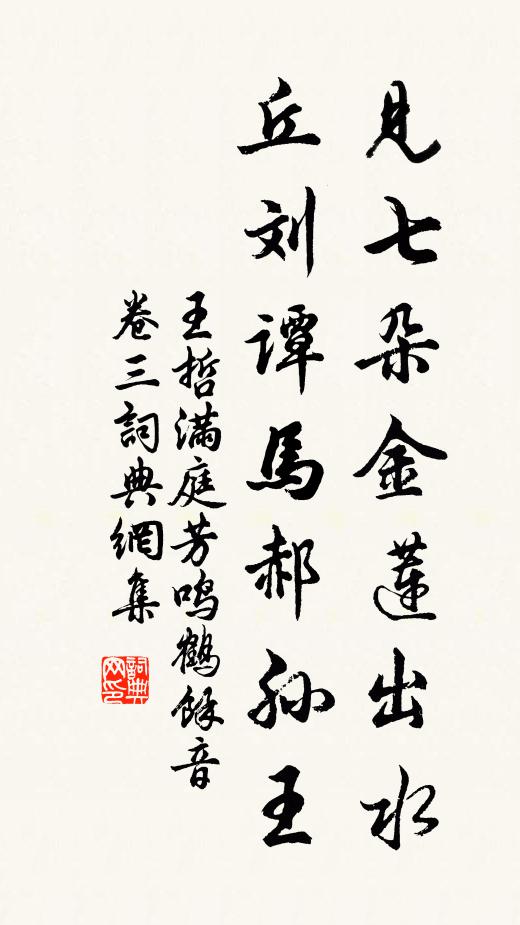 見七朵金蓮出水
丘刘譚馬郝孙王
王哲满庭芳鸣鶴餘音
卷三詞典網集
詞典網印